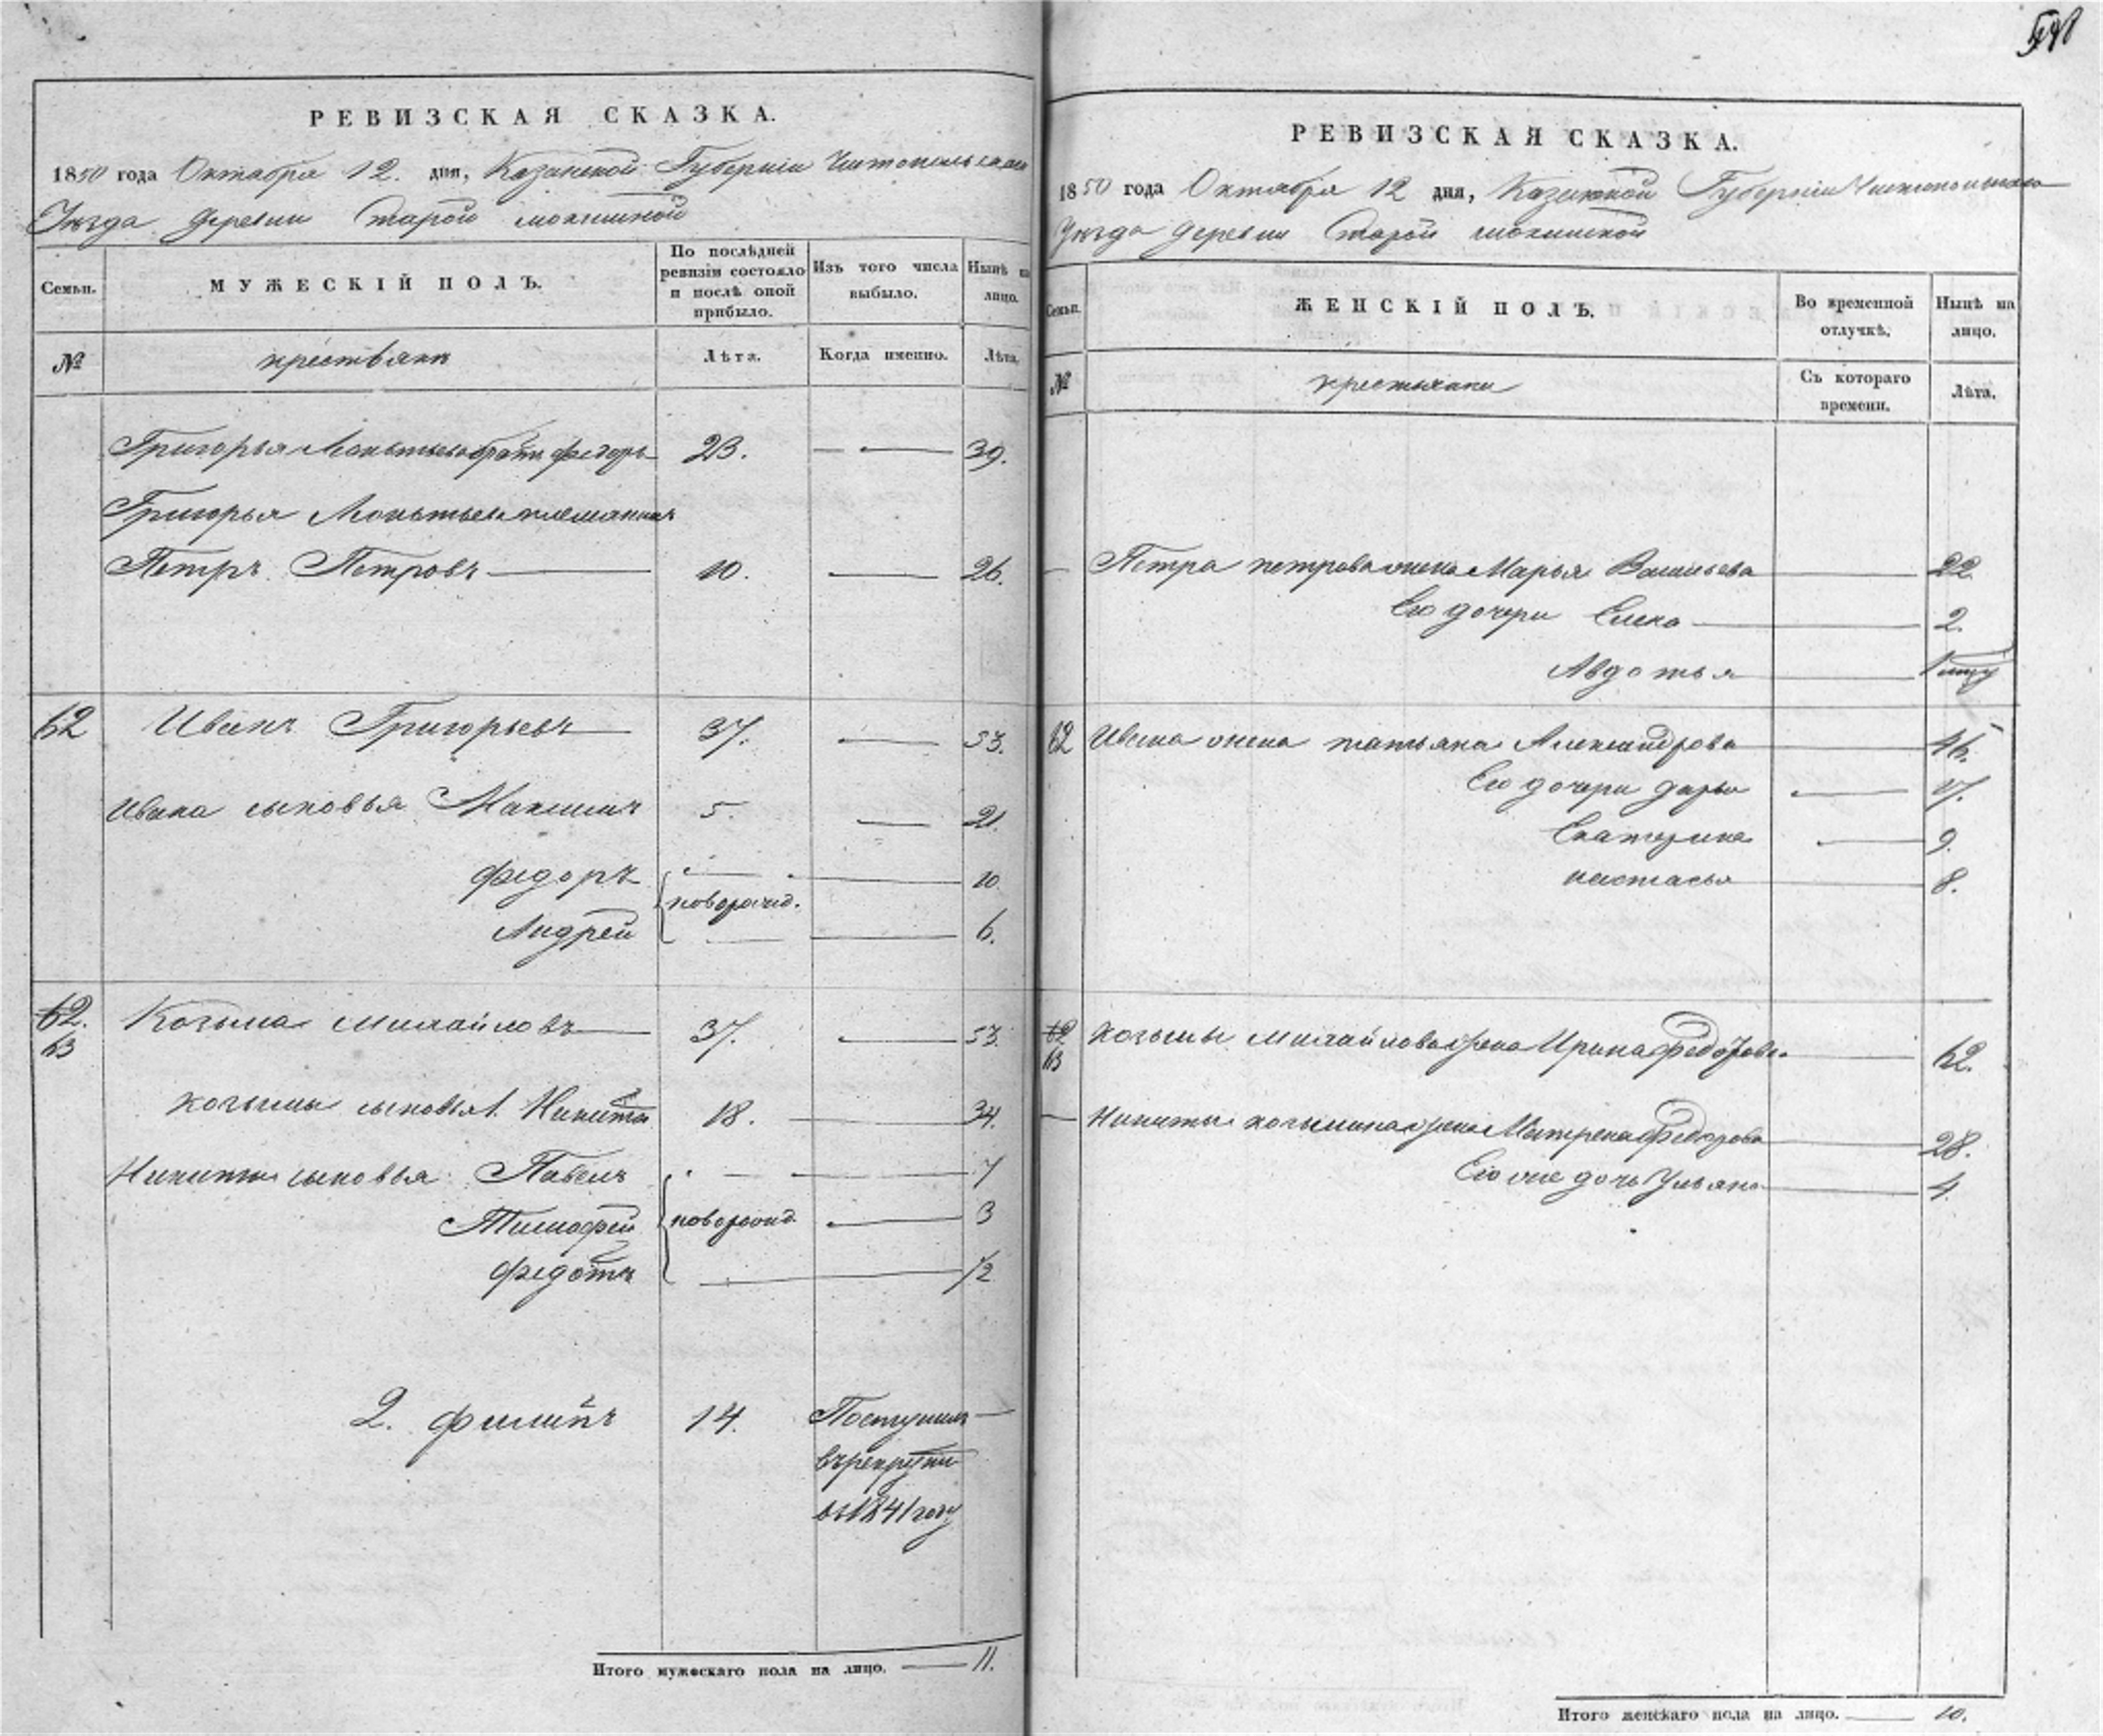 РЕВИЗСКАЯ СКАЗКА.
1850 года Октября 12. дня, Казанской Губернiи Чистопольскаго
Уѣзда деревни Старой мокшиной
Семьи. МУЖЕСКІЙ ПОЛЪ. По послѣдней ревизіи состояло и послѣ оной прибыло. Изъ того числа выбыло. Нынѣ на лицо.
№ крестьяне Лѣта. Когда именно. Лѣта.
Григорья братъ федоръ 23. 39.
Григорья племянникъ
Петръ Петровъ 10. 26.
62 Иванъ Григорьевъ 37. 53.
Ивана сыновья Максимъ 5. 21.
федоръ 10
новорожд.
Андрей 6.
62. Козьма Михайловъ 37. 53.
63
козьмы сыновья 1. Никита 18. 34.
Никиты сыновья Павелъ 7
Тимофей новорожд. 3
федотъ 1/2
2. филипъ 14. Поступилъ
въ рекруты
въ 1841 году
Итого мужескаго пола на лицо. 11.
РЕВИЗСКАЯ СКАЗКА.
1850 года Октября 12 дня, Казанской Губернiи Чистопольскаго
Уѣзда деревни Старой мокшиной
Семьи. ЖЕНСКІЙ ПОЛЪ. Во временной отлучкѣ. Нынѣ на лицо.
№ крестьянки Съ котораго времени. Лѣта.
Петра петрова жена Марья Васильева 22.
Его дочери Елена 2.
Авдотья
62 Ивана жена татьяна Александрова 46.
Его дочери дарья 17.
Екатерина 9.
настасья 8.
62 козьмы Михайлова жена Ирина федорова 62.
63
Никиты козьмина жена Матрена федорова 28.
Его же дочь Ульяна 4.
Итого женскаго пола на лицо. 10.